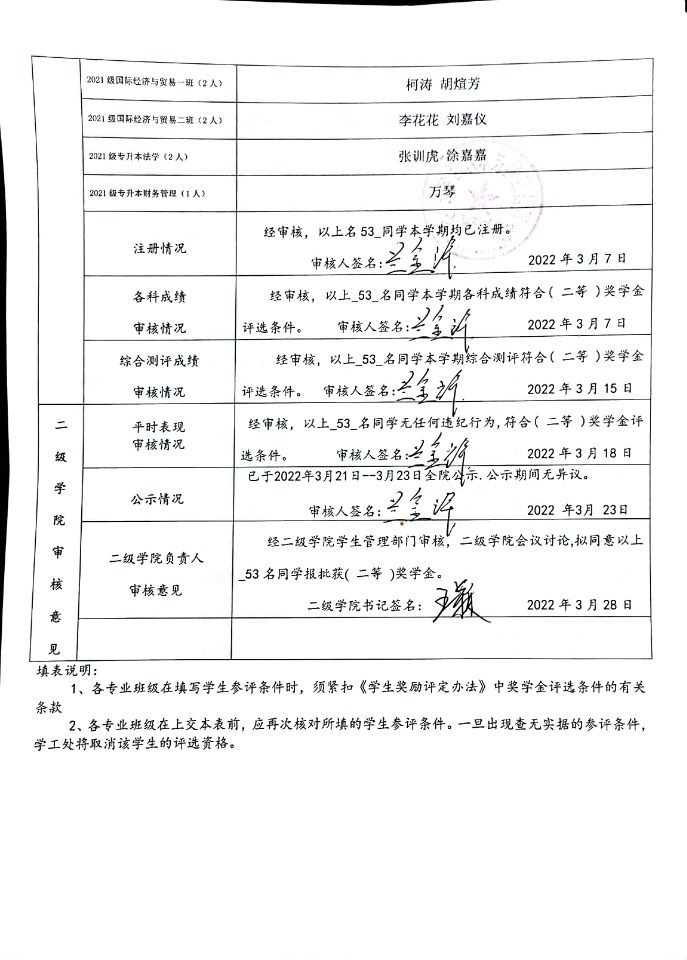 2021级国际经济与贸易一班（2人）
柯涛 胡煊芳
2021级国际经济与贸易二班（2人）
李花花 刘嘉仪
2021级专升本法学（2人）
张训虎 涂嘉嘉
2021级专升本财务管理（1人）
万琴
注册情况
经审核，以上名53_同学本学期均已注册。
审核人签名:
2022年3月7日
各科成绩
审核情况
经审核，以上_53_名同学本学期各科成绩符合( 二等 )奖学金
评选条件。 审核人签名:
2022年3月7日
综合测评成绩
审核情况
经审核，以上_53_名同学本学期综合测评符合( 二等 )奖学金
评选条件。 审核人签名:
2022年3月15日
二级学院审核意见
平时表现
审核情况
经审核，以上_53_名同学无任何违纪行为,符合( 二等 )奖学金评
选条件。 审核人签名:
2022年3月18日
公示情况
已于2022年3月21日--3月23日全院公示.公示期间无异议。
审核人签名:
2022 年3月 23日
二级学院负责人
审核意见
经二级学院学生管理部门审核，二级学院会议讨论,拟同意以上
_53名同学报批获( 二等 )奖学金。
二级学院书记签名:
2022年3月28日
填表说明:
1、各专业班级在填写学生参评条件时，须紧扣《学生奖励评定办法》中奖学金评选条件的有关
条款
2、各专业班级在上交本表前，应再次核对所填的学生参评条件。一旦出现查无实据的参评条件，
学工处将取消该学生的评选资格。